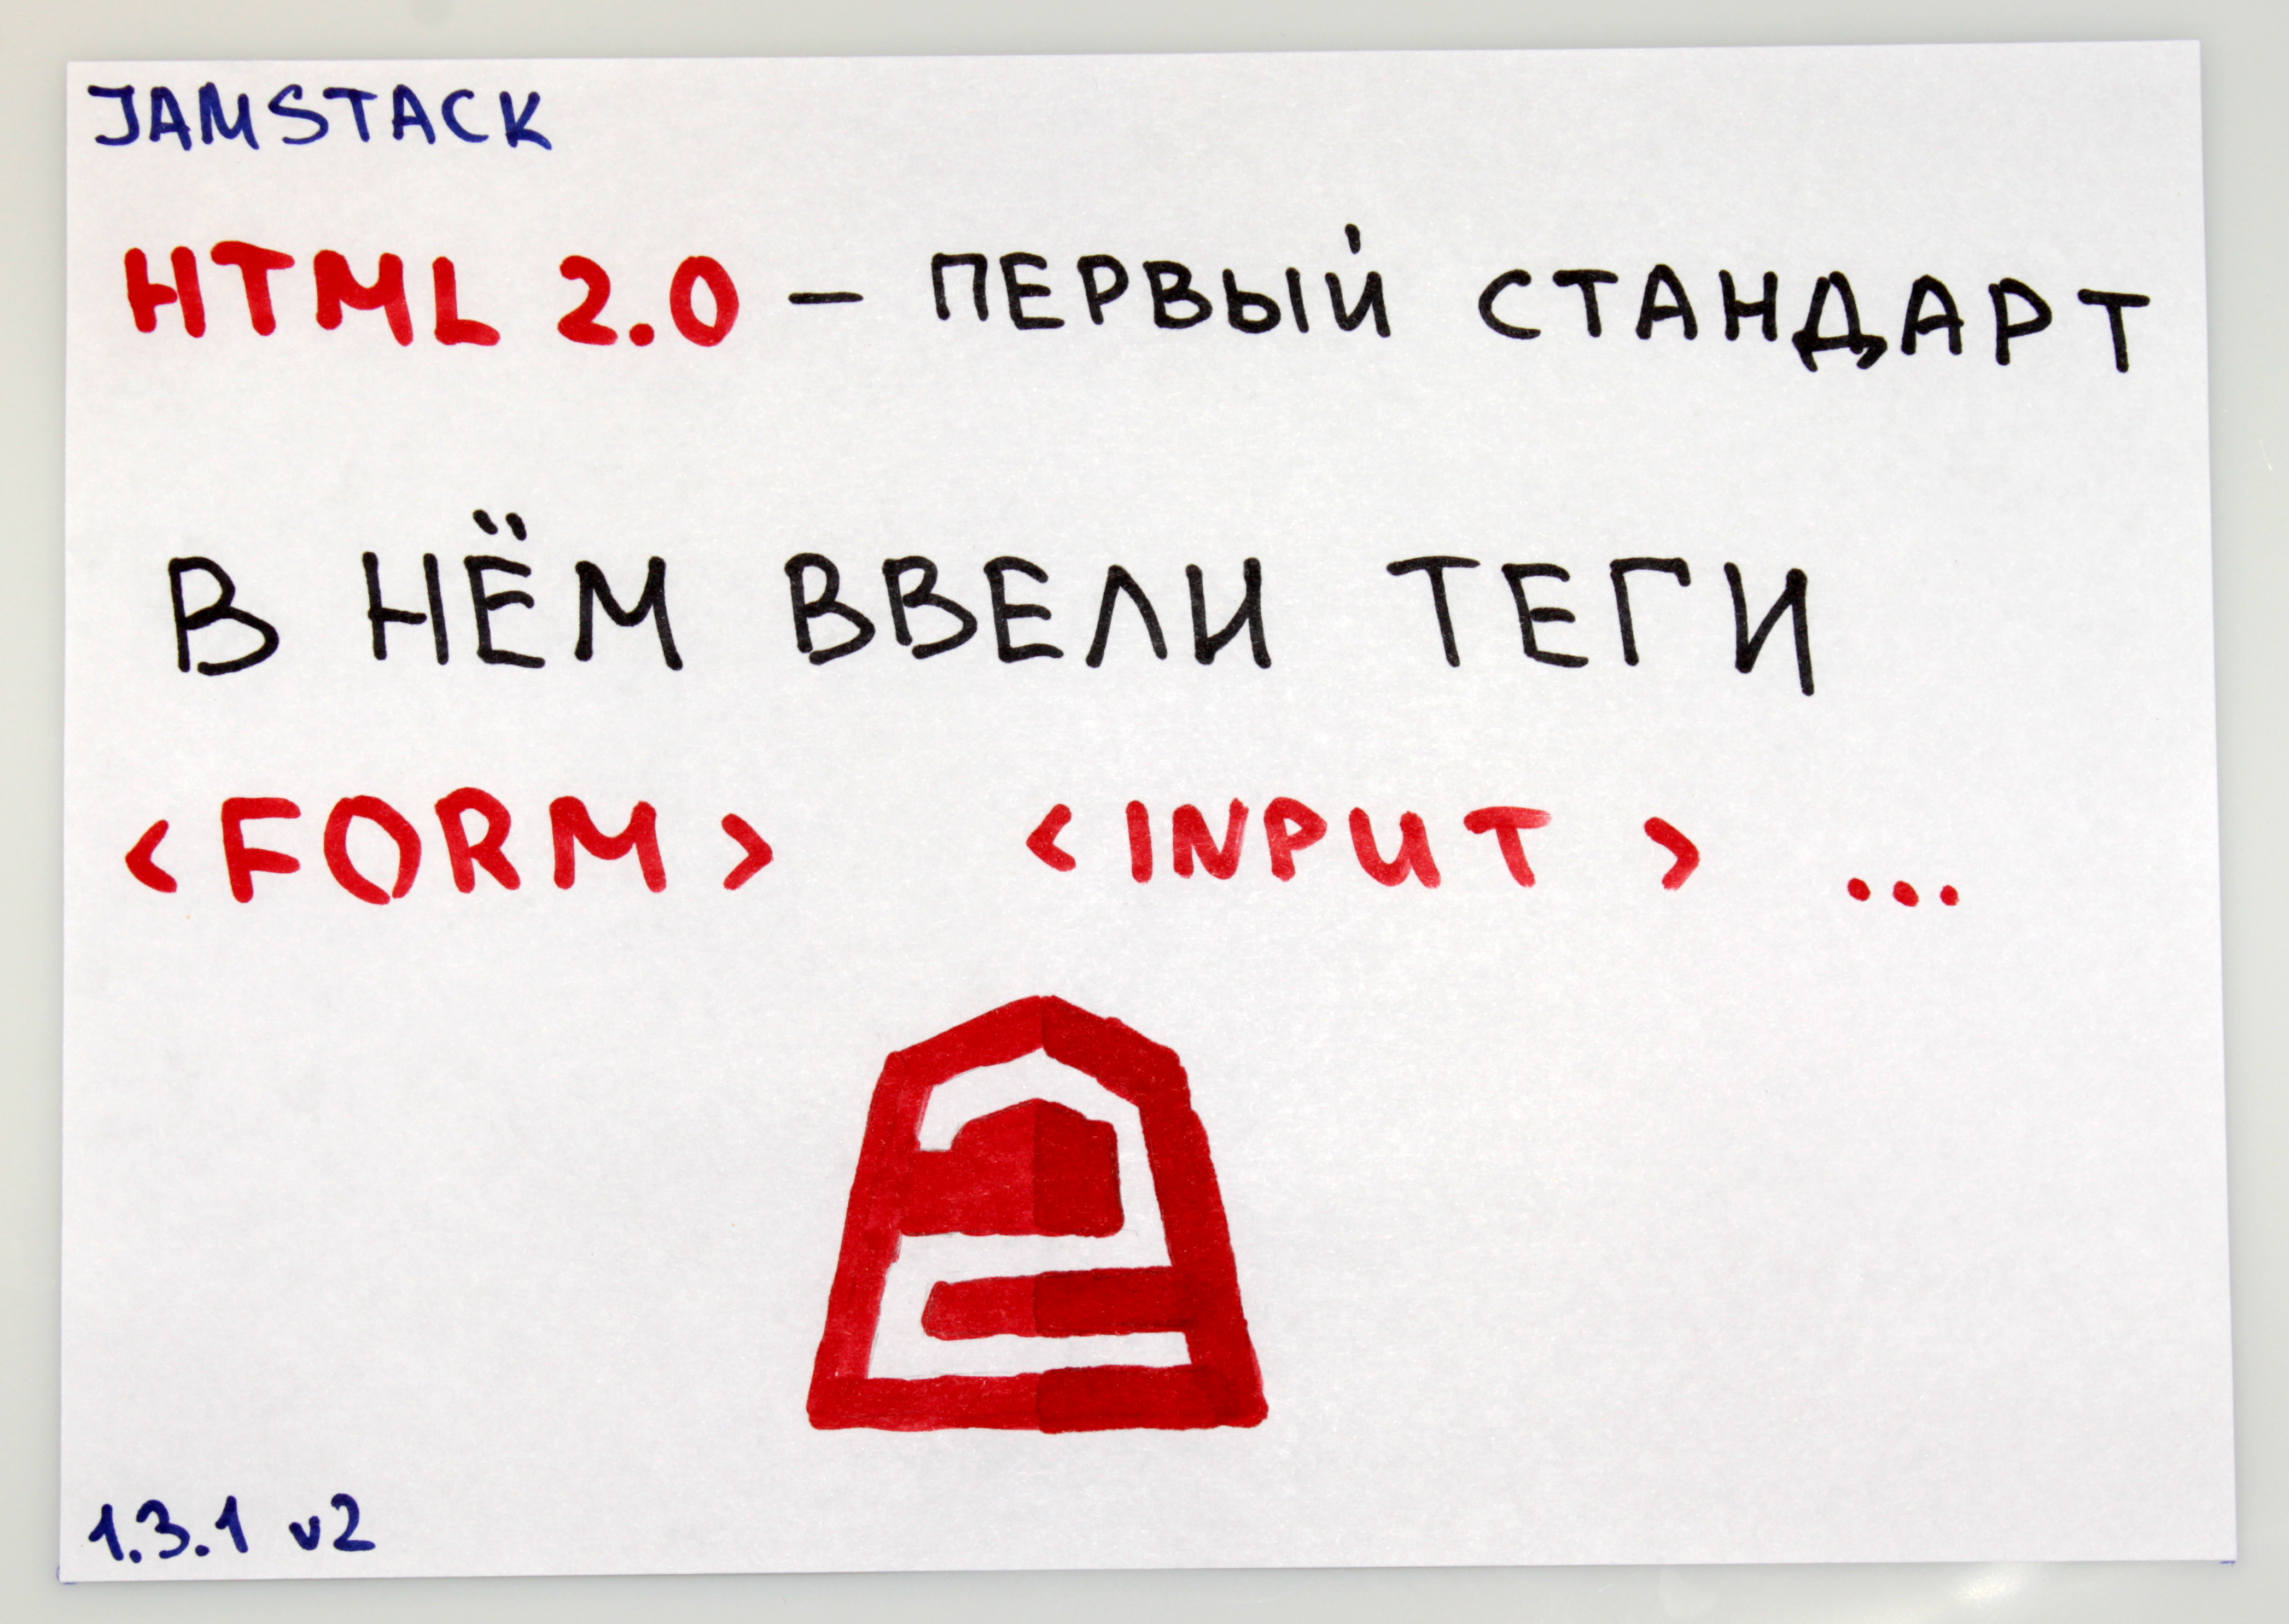 JAMSTACK
HTML 2.0 – ПЕРВЫЙ СТАНДАРТ
В НЁМ ВВЕЛИ ТЕГИ
<FORM> <INPUT> ...
1.3.1 v2